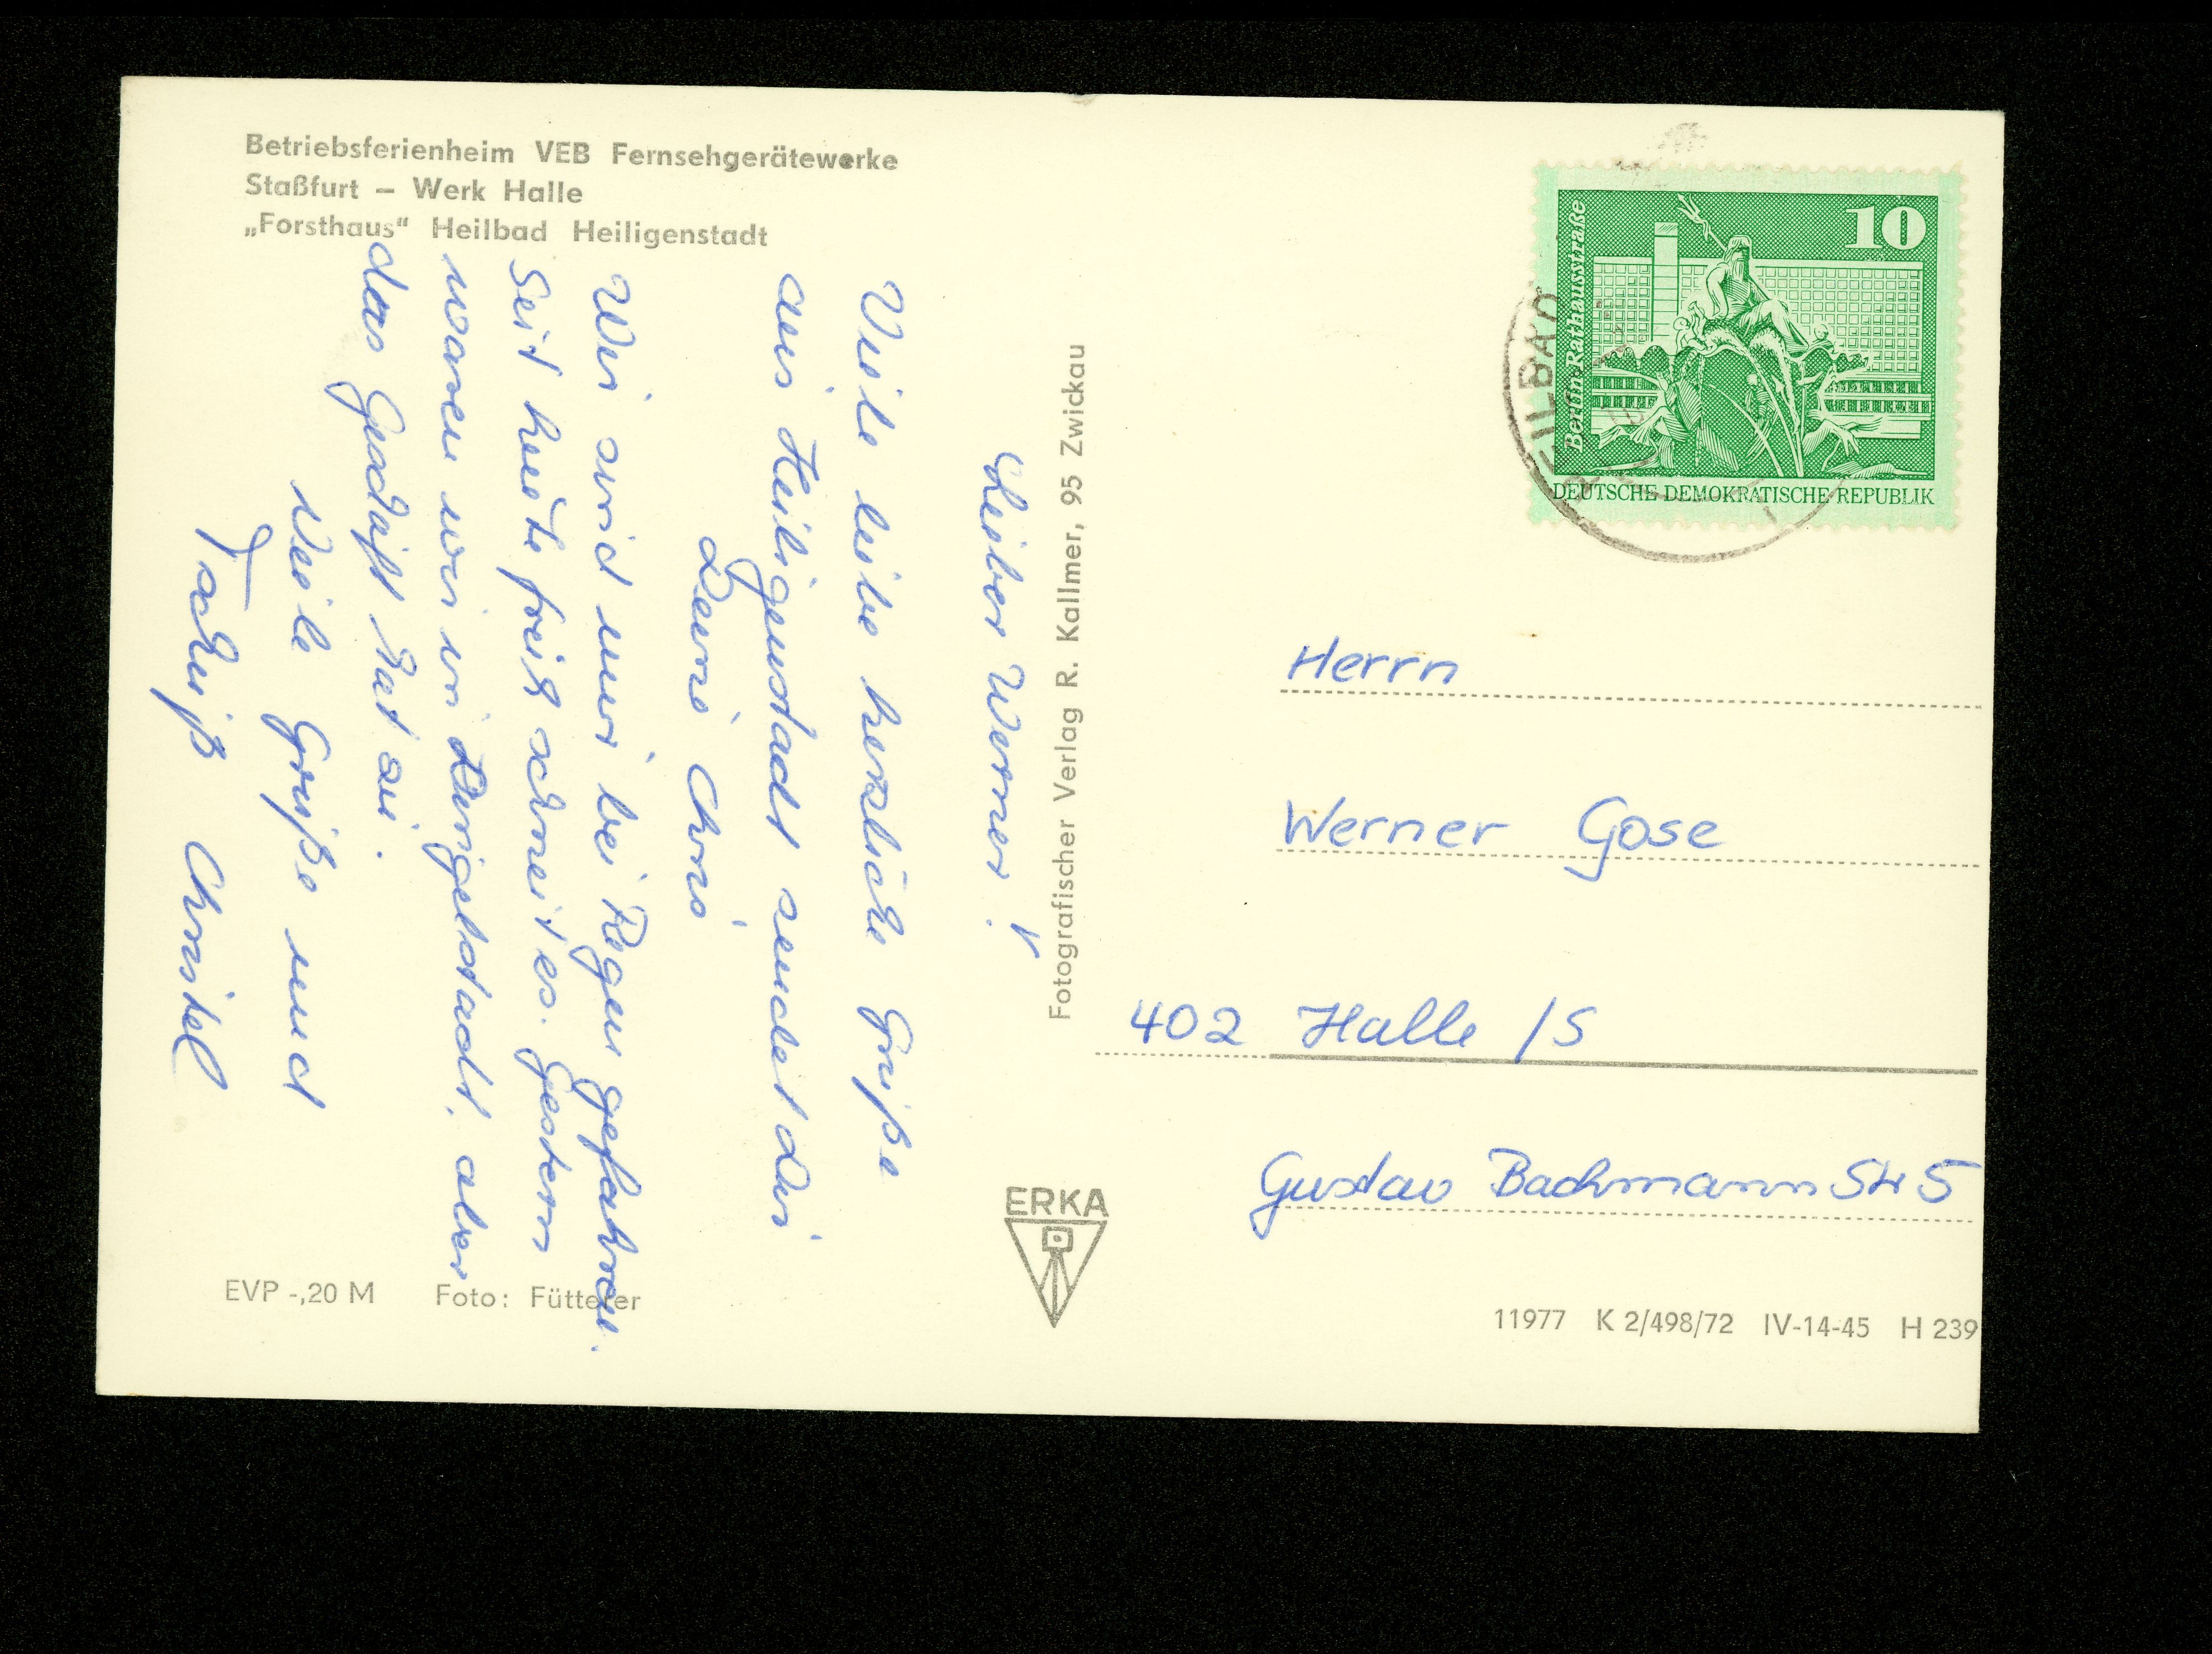 Betriebsferienheim VEB Fernsehgerätewerke
Staßfurt – Werk Halle
„Forsthaus“ Heilbad Heiligenstadt
Lieber Werner!
Viele liebe herzliche Grüße
aus Heiligenstadt sendet Dir
Deine Chris
Wir sind nur bei Regen gefahren.
Seit heute früh schneit es. Gestern
waren wir in Dingelstädt, aber
das Geschäft hat zu.
Viele Grüße und
Tschüß Christel
Fotografischer Verlag R. Kallmer, 95 Zwickau
ERKA
EVP -,20 M Foto: Fütterer
10
Berlin Rathausstraße
DEUTSCHE DEMOKRATISCHE REPUBLIK
HEILBAD
Herrn
Werner Gose
402 Halle /S
Gustav Bachmann Str 5
11977 K 2/498/72 IV-14-45 H 239